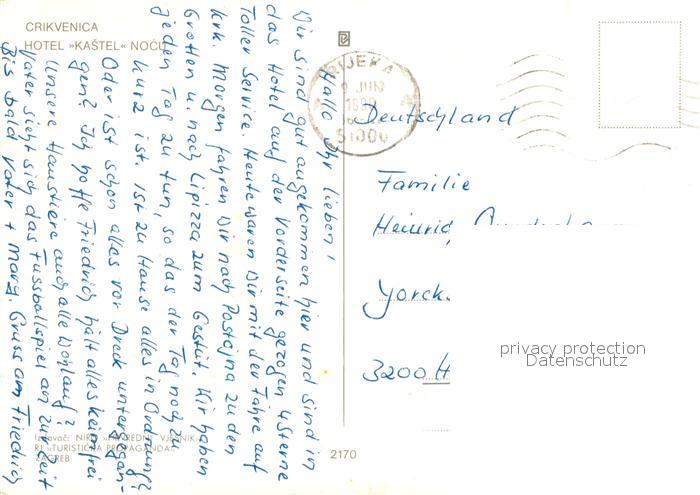 CRIKVENICA
HOTEL »KAŠTEL« NOĆU
Hallo Ihr lieben!
Wir sind gut angekommen hier und sind in
das Hotel auf der Vorderseite gezogen 4 Sterne
Toller Service. Heute waren wir mit der Fähre auf
Krk. Morgen fahren wir nach Postojna zu den
Grotten u. nach Lipizza zum Gestüt. Wir haben
jeden Tag zu tun, so das der Tag noch zu
kurz ist. Ist zu Hause alles in Ordnung?
Oder ist schon alles vor Dreck untergegan-
gen? Ich hoffe Friedrich hält alles keimfrei
Unsere Haustiere auch alle Wohlauf?
Vater sieht sich das Fussballspiel an zur Zeit
Bis bald Vater + Marg. Gruss am Friedrich
RIJEKA
9 JUN
51000
Deutschland
Familie
Heinrich
Yorck.
3200 H
privacy protection
Datenschutz
Izdavač: NIRO »PRIVREDNI VJESNIK«
RJ »TURISTIČKA PROPAGANDA«
ZAGREB
2170